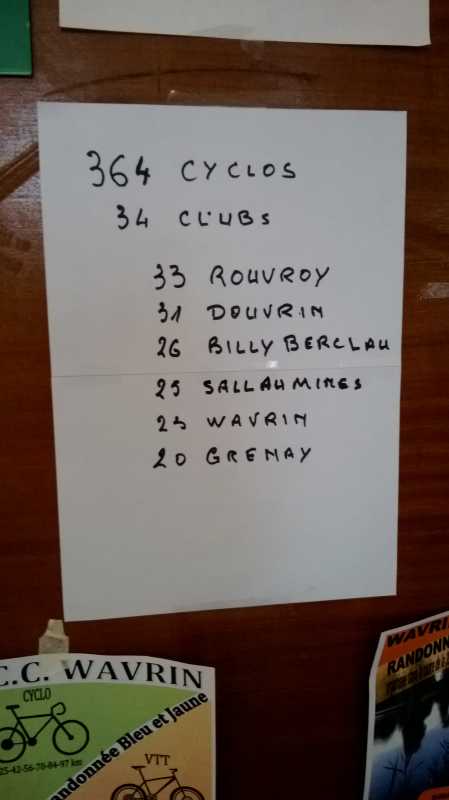 364 CYCLOS
34 CLUBS
33 ROUVROY
31 DOUVRIN
26 BILLY BERCLAU
25 SALLAUMINES
23 WAVRIN
20 GRENAY
C.C. WAVRIN
CYCLO
25-42-56-70-84-97 km
Randonnée Bleu et Jaune
VTT
WAVRI
RANDONN